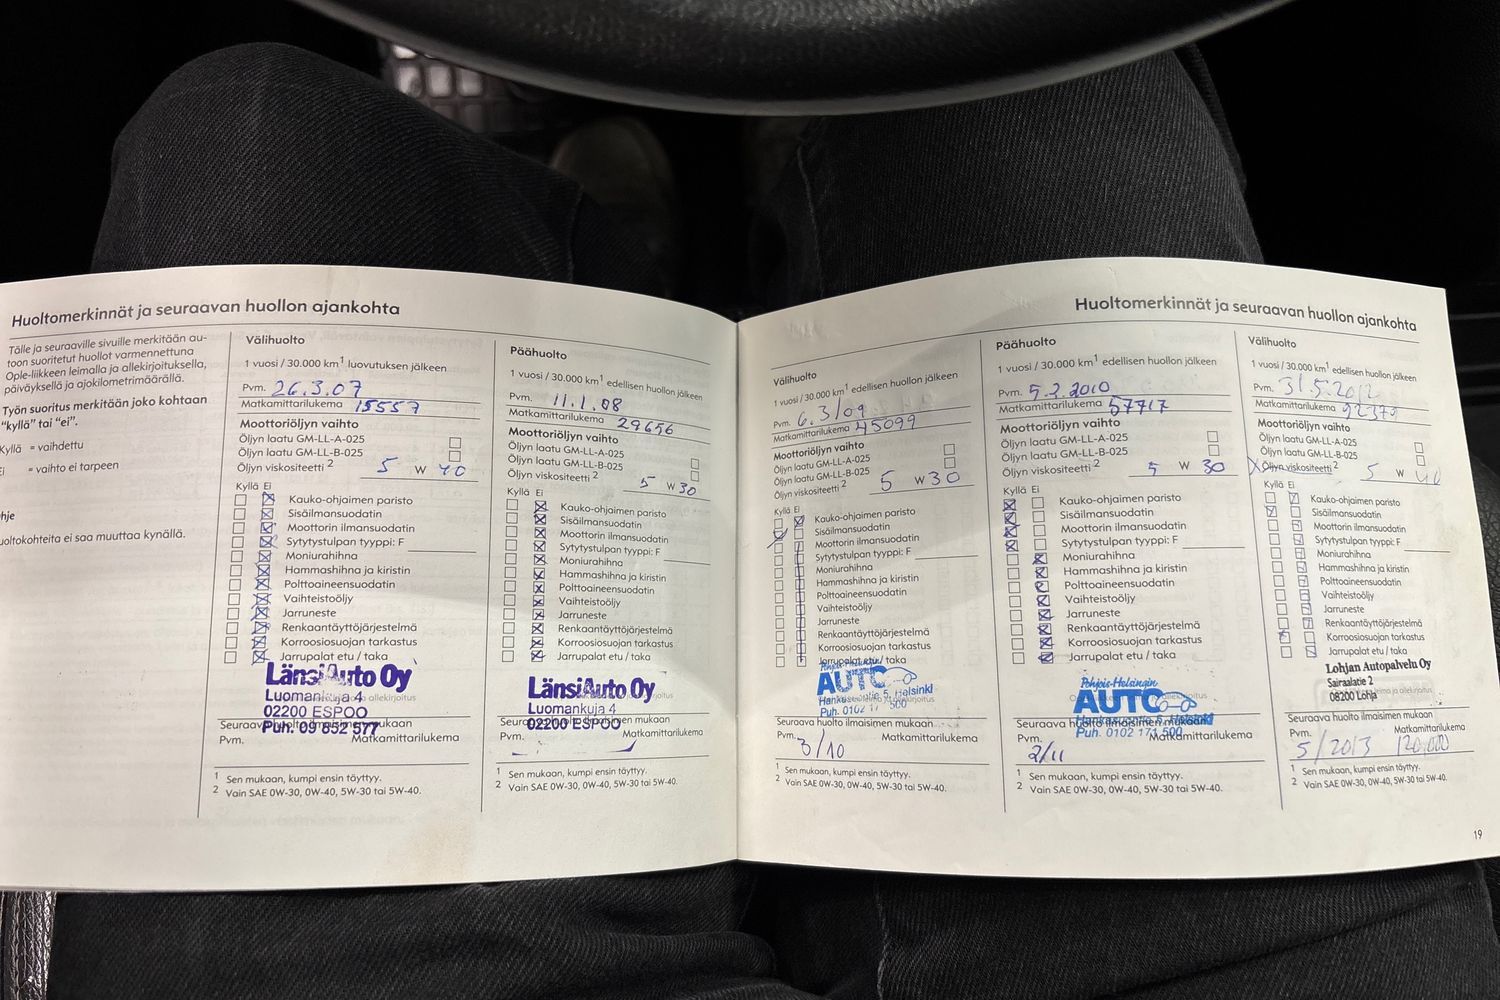 Huoltomerkinnät ja seuraavan huollon ajankohta
Tälle ja seuraaville sivuille merkitään au-
toon suoritetut huollot varmennettuna
Ople-liikkeen leimalla ja allekirjoituksella,
päiväyksellä ja ajokilometrimäärällä.
Työn suoritus merkitään joko kohtaan
"kyllä" tai "ei".
Kyllä = vaihdettu
= vaihto ei tarpeen
hje
uoltokohteita ei saa muuttaa kynällä.
Välihuolto
1 vuosi / 30.000 km¹ luovutuksen jälkeen
Pvm. 26.3.07
Matkamittarilukema 15557
Moottoriöljyn vaihto
Öljyn laatu GM-LL-A-025
Öljyn laatu GM-LL-B-025
Öljyn viskositeetti² 5 W 40
Kyllä Ei
Kauko-ohjaimen paristo
Sisäilmansuodatin
Moottorin ilmansuodatin
Sytytystulpan tyyppi: F
Moniurahihna
Hammashihna ja kiristin
Polttoaineensuodatin
Vaihteistoöljy
Jarruneste
Renkaantäyttöjärjestelmä
Korroosiosuojan tarkastus
Jarrupalat etu / taka
LänsiAuto Oy
Luomankuja 4
02200 ESPOO
Puh. 09 852 577
Seuraava huolto ilmaisimen mukaan
Pvm. Matkamittarilukema
¹ Sen mukaan, kumpi ensin täyttyy.
² Vain SAE 0W-30, 0W-40, 5W-30 tai 5W-40.
Päähuolto
1 vuosi / 30.000 km¹ edellisen huollon jälkeen
Pvm. 11.1.08
Matkamittarilukema 29656
Moottoriöljyn vaihto
Öljyn laatu GM-LL-A-025
Öljyn laatu GM-LL-B-025
Öljyn viskositeetti² 5 W 30
Kyllä Ei
Kauko-ohjaimen paristo
Sisäilmansuodatin
Moottorin ilmansuodatin
Sytytystulpan tyyppi: F
Moniurahihna
Hammashihna ja kiristin
Polttoaineensuodatin
Vaihteistoöljy
Jarruneste
Renkaantäyttöjärjestelmä
Korroosiosuojan tarkastus
Jarrupalat etu / taka
LänsiAuto Oy
Luomankuja 4
02200 ESPOO
Seuraava huolto ilmaisimen mukaan
Pvm. Matkamittarilukema
¹ Sen mukaan, kumpi ensin täyttyy.
² Vain SAE 0W-30, 0W-40, 5W-30 tai 5W-40.
Huoltomerkinnät ja seuraavan huollon ajankohta
Välihuolto
1 vuosi / 30.000 km¹ edellisen huollon jälkeen
Pvm. 6.3/09
Matkamittarilukema 45099
Moottoriöljyn vaihto
Öljyn laatu GM-LL-A-025
Öljyn laatu GM-LL-B-025
Öljyn viskositeetti² 5 W 30
Kyllä Ei
Kauko-ohjaimen paristo
Sisäilmansuodatin
Moottorin ilmansuodatin
Sytytystulpan tyyppi: F
Moniurahihna
Hammashihna ja kiristin
Polttoaineensuodatin
Vaihteistoöljy
Jarruneste
Renkaantäyttöjärjestelmä
Korroosiosuojan tarkastus
Jarrupalat etu / taka
Pohjois-Helsingin
AUTO
Helsinki
Puh. 0102 17 500
Seuraava huolto ilmaisimen mukaan
Pvm. 3/10 Matkamittarilukema
¹ Sen mukaan, kumpi ensin täyttyy.
² Vain SAE 0W-30, 0W-40, 5W-30 tai 5W-40.
Päähuolto
1 vuosi / 30.000 km¹ edellisen huollon jälkeen
Pvm. 5.2.2010
Matkamittarilukema 57717
Moottoriöljyn vaihto
Öljyn laatu GM-LL-A-025
Öljyn laatu GM-LL-B-025
Öljyn viskositeetti² 5 W 30
Kyllä Ei
Kauko-ohjaimen paristo
Sisäilmansuodatin
Moottorin ilmansuodatin
Sytytystulpan tyyppi: F
Moniurahihna
Hammashihna ja kiristin
Polttoaineensuodatin
Vaihteistoöljy
Jarruneste
Renkaantäyttöjärjestelmä
Korroosiosuojan tarkastus
Jarrupalat etu / taka
Pohjois-Helsingin
AUTO
Helsinki
Puh. 0102 171 500
Seuraava huolto ilmaisimen mukaan
Pvm. 2/11 Matkamittarilukema
¹ Sen mukaan, kumpi ensin täyttyy.
² Vain SAE 0W-30, 0W-40, 5W-30 tai 5W-40.
Välihuolto
1 vuosi / 30.000 km¹ edellisen huollon jälkeen
Pvm. 31.5.2012
Matkamittarilukema 92379
Moottoriöljyn vaihto
Öljyn laatu GM-LL-A-025
Öljyn laatu GM-LL-B-025
Öljyn viskositeetti² 5 W 40
Kyllä Ei
Kauko-ohjaimen paristo
Sisäilmansuodatin
Moottorin ilmansuodatin
Sytytystulpan tyyppi: F
Moniurahihna
Hammashihna ja kiristin
Polttoaineensuodatin
Vaihteistoöljy
Jarruneste
Renkaantäyttöjärjestelmä
Korroosiosuojan tarkastus
Jarrupalat etu / taka
Lohjan Autopalvelu Oy
Sairaalatie 2
08200 Lohja
Seuraava huolto ilmaisimen mukaan
Pvm. Matkamittarilukema
5/2013 120.000
¹ Sen mukaan, kumpi ensin täyttyy.
² Vain SAE 0W-30, 0W-40, 5W-30 tai 5W-40.
19